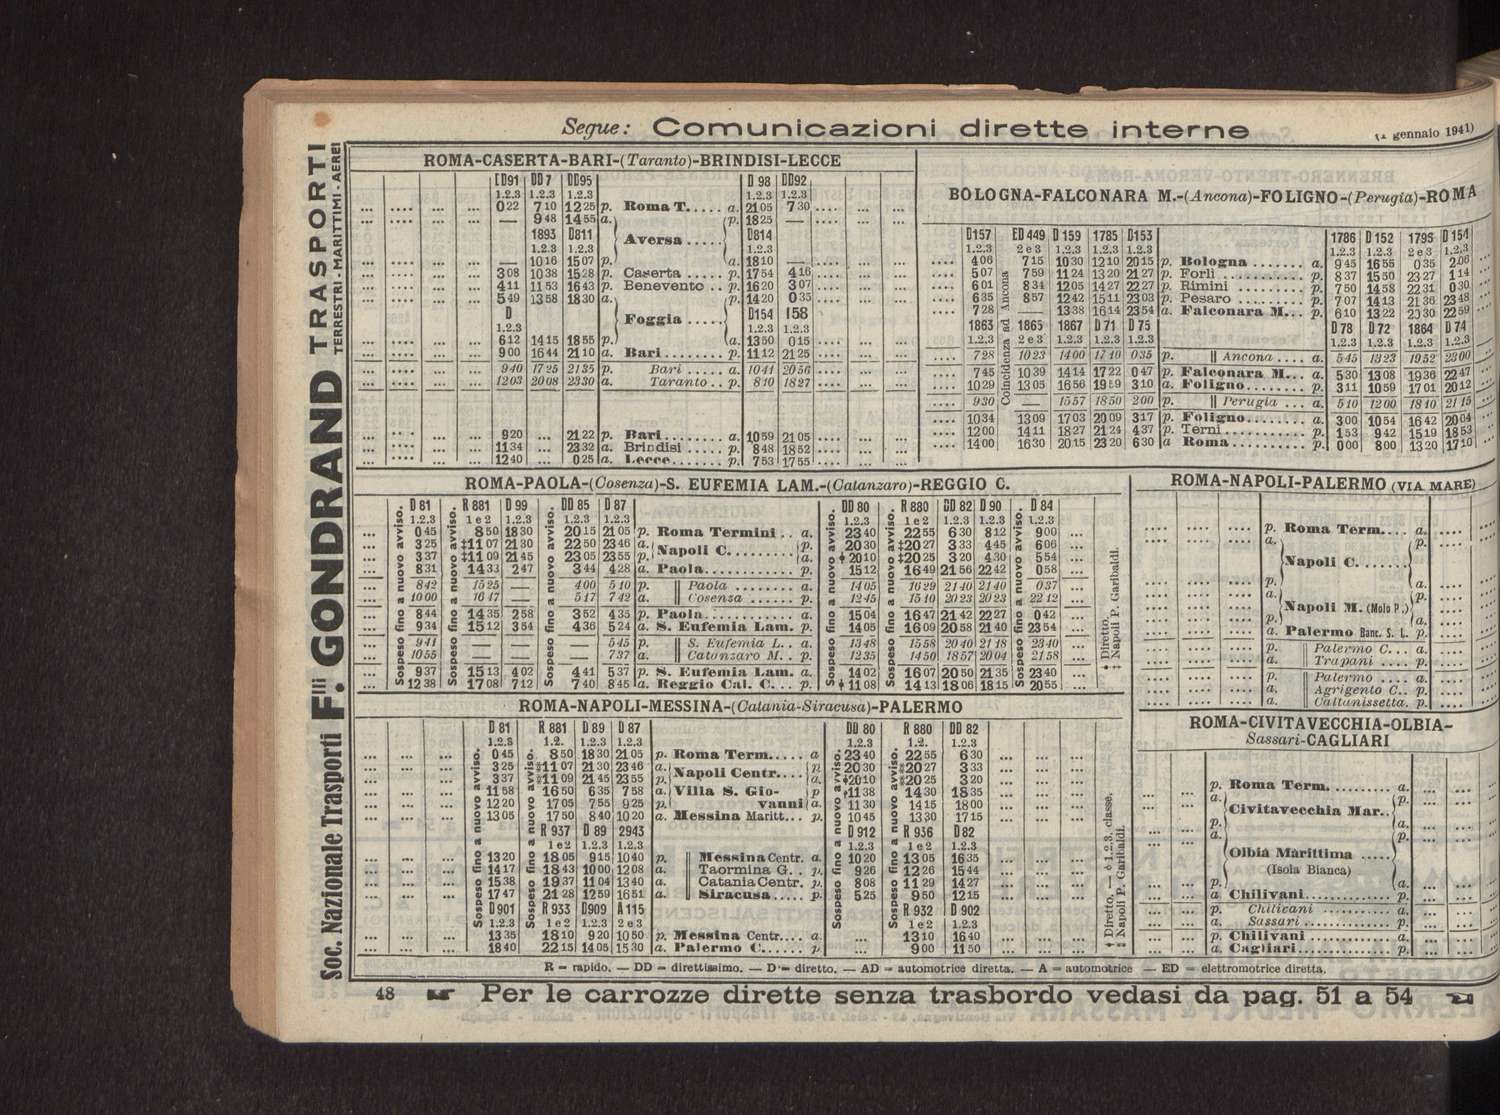 Segue: Comunicazioni dirette interne
gennaio 1941)
Soc. Nazionale Trasporti F.lli GONDRAND TRASPORTI
TERRESTRI - MARITTIMI - AEREI
ROMA-CASERTA-BARI-(Taranto)-BRINDISI-LECCE
DD 7 DD95 D 98 DD92
1.2.3 1.2.3 1.2.3 1.2.3 1.2.3
0 22 7 10 12 25 p. Roma T. .... a. 21 05 7 30
— 9 48 14 55 a. p. 18 25 —
1893 D811 Aversa ..... D814
1.2.3 1.2.3 1.2.3
— 10 16 15 07 p. a. 18 10 —
3 08 10 38 15 28 p. Caserta ...... p. 17 54 4 16
4 11 11 53 16 43 p. Benevento .. p. 16 20 3 07
5 49 13 58 18 30 a. p. 14 20 0 35
D Foggia ..... D154 158
1.2.3 1.2.3 1.2.3
6 12 14 15 18 55 p. a. 13 50 0 15
9 00 16 44 21 10 a. Bari ........ p. 11 12 21 25
9 40 17 25 21 35 p. Bari ...... a. 10 41 20 56
12 03 20 08 23 30 a. Taranto .. p. 8 10 18 27
9 20 ... 21 22 p. Bari ........ a. 10 59 21 05
11 34 ... 23 32 a. Brindisi ..... p. 8 48 18 52
12 40 ... 0 25 a. Lecce ....... p. 7 53 17 55
BOLOGNA-FALCONARA M.-(Ancona)-FOLIGNO-(Perugia)-ROMA
D157 ED 449 D 159 1785 D153 1786 D 152 1795 D 154
1.2.3 2 e 3 1.2.3 1.2.3 1.2.3 1.2.3 1.2.3 2 e 3 1.2.3
4 06 7 15 10 30 12 10 20 15 p. Bologna ....... a. 9 45 16 55 0 35 2 06
5 07 7 59 11 24 13 20 21 27 p. Forlì ........... p. 8 37 15 50 23 27 1 14
6 01 8 34 12 05 14 27 22 27 p. Rimini ......... p. 7 50 14 58 22 31 0 30
6 35 8 57 12 42 15 11 23 03 p. Pesaro ......... p. 7 07 14 13 21 36 23 48
7 28 — 13 38 16 14 23 54 a. Falconara M... p. 6 10 13 22 20 30 22 59
Coincidenza ad Ancona
1863 1865 1867 D 71 D 75 D 78 D 72 1864 D 74
1.2.3 2 e 3 1.2.3 1.2.3 1.2.3 1.2.3 1.2.3 1.2.3 1.2.3
7 28 10 23 14 00 17 10 0 35 p. Ancona .... a. 5 45 13 23 19 52 23 00
7 45 10 39 14 14 17 22 0 47 p. Falconara M... a. 5 30 13 08 19 36 22 47
10 29 13 05 16 56 19 59 3 10 a. Foligno ........ p. 3 11 10 59 17 01 20 12
9 30 — 15 57 18 50 2 00 p. Perugia ... a. 5 10 12 00 18 10 21 15
10 34 13 09 17 03 20 09 3 17 p. Foligno ........ a. 3 00 10 54 16 42 20 04
12 00 14 11 18 27 21 24 4 37 p. Terni .......... p. 1 53 9 42 15 19 18 53
14 00 16 30 20 15 23 20 6 30 a Roma .......... p. 0 00 8 00 13 20 17 10
ROMA-PAOLA-(Cosenza)-S. EUFEMIA LAM.-(Catanzaro)-REGGIO C.
D 81 R 881 D 99 DD 85 D 87 DD 80 R 880 DD 82 D 90 D 84
1.2.3 1 e 2 1.2.3 1.2.3 1.2.3 1.2.3 1 e 2 1.2.3 1.2.3 1.2.3
0 45 8 50 18 30 20 15 21 05 p. Roma Termini .. a. 23 40 22 55 6 30 8 12 9 00
3 25 ‡11 07 21 30 22 50 23 46 a. Napoli C. p. 20 30 ‡20 27 3 33 4 45 6 06
3 37 ‡11 09 21 45 23 05 23 55 p. a. †20 10 ‡20 25 3 20 4 30 5 54
8 31 14 33 2 47 3 44 4 28 a. Paola ............ p. 15 12 16 49 21 56 22 42 0 58
8 42 15 25 — 4 00 5 10 p. Paola ........ a. 14 05 16 29 21 40 21 40 0 37
10 00 16 47 — 5 17 7 42 a. Cosenza ...... p. 12 45 15 10 20 23 20 23 22 12
8 44 14 35 2 58 3 52 4 35 p. Paola ............ a. 15 04 16 47 21 42 22 27 0 42
9 34 15 12 3 54 4 36 5 24 a. S. Eufemia Lam. p. 14 05 16 09 20 58 21 40 23 54
9 41 — — — 5 45 p. S. Eufemia L. . a. 13 48 15 58 20 40 21 18 23 40
10 55 — — — 7 37 a. Catanzaro M. . p. 12 35 14 50 18 57 20 04 21 58
9 37 15 13 4 02 4 41 5 37 p. S. Eufemia Lam. a. 14 02 16 07 20 50 21 35 23 40
12 38 17 08 7 12 7 40 8 45 a. Reggio Cal. C. .. p. †11 08 14 13 18 06 18 15 20 55
Sospeso fino a nuovo avviso.
Sospeso fino a nuovo avviso.
Sospeso fino a nuovo avviso.
Sospeso fino a nuovo avviso.
Sospeso fino a nuovo avviso.
Sospeso fino a nuovo avviso.
† Diretto.
‡ Napoli P. Garibaldi.
ROMA-NAPOLI-PALERMO (VIA MARE)
p. Roma Term. ... a.
a. Napoli C. ...... p.
p. a.
a. Napoli M. (Molo P.) p.
p. a.
a. Palermo Banc. S. L. p.
p. Palermo C... a.
a. Trapani .... p.
p. Palermo .... a.
a. Agrigento C.. p.
a. Caltanissetta. p.
ROMA-NAPOLI-MESSINA-(Catania-Siracusa)-PALERMO
D 81 R 881 D 89 D 87 DD 80 R 880 DD 82
1.2.3 1.2. 1.2.3 1.2.3 1.2.3 1.2. 1.2.3
0 45 8 50 18 30 21 05 p. Roma Term. .... a 23 40 22 55 6 30
3 25 11 07 21 30 23 46 a. Napoli Centr.... p 20 30 20 27 3 33
3 37 11 09 21 45 23 55 p. a. 20 10 20 25 3 20
11 58 16 50 6 35 7 58 a. Villa S. Gio- p †11 38 14 30 18 35
12 20 17 05 7 55 9 25 p. vanni a. 11 30 14 15 18 00
13 05 17 50 8 40 10 20 a. Messina Maritt... p. 10 45 13 30 17 15
R 937 D 89 2943 D 912 R 936 D 82
1 e 2 1.2.3 1.2.3 1.2.3 1 e 2 1.2.3
13 20 18 05 9 15 10 40 p. Messina Centr. a. 10 20 13 05 16 35
14 17 18 43 10 00 12 08 a. Taormina G. . p. 9 26 12 26 15 44
15 38 19 37 11 04 13 40 a. Catania Centr. p. 8 08 11 29 14 27
17 47 21 28 12 59 16 51 a. Siracusa ..... p. 5 25 9 50 12 15
D 901 R 933 D909 A 115 R 932 D 902
1.2.3 1 e 2 1.2.3 2 e 3 1 e 2 1.2.3
13 35 18 10 9 20 10 50 p. Messina Centr.... a. 13 10 16 40
18 40 22 15 14 05 15 30 a. Palermo C. ..... p. 9 00 11 50
Sospeso fino a nuovo avviso.
Sospeso fino a nuovo avviso.
Sospeso fino a nuovo avviso.
Sospeso fino a nuovo avviso.
† Diretto, — è 1.2.3. classe.
‡ Napoli P. Garibaldi.
ROMA-CIVITAVECCHIA-OLBIA-
Sassari-CAGLIARI
p. Roma Term. ........ a.
a. Civitavecchia Mar.. p.
p. a.
a. Olbia Marittima ..... p.
(Isola Bianca)
p. a.
a. Chilivani ............ p.
p. Chilivani ......... a.
a. Sassari ............ p.
p. Chilivani ............ a.
a. Cagliari ............. p.
R = rapido. — DD = direttissimo. — D = diretto. — AD = automotrice diretta. — A = automotrice — ED = elettromotrice diretta.
48 ☛ Per le carrozze dirette senza trasbordo vedasi da pag. 51 a 54 ☚